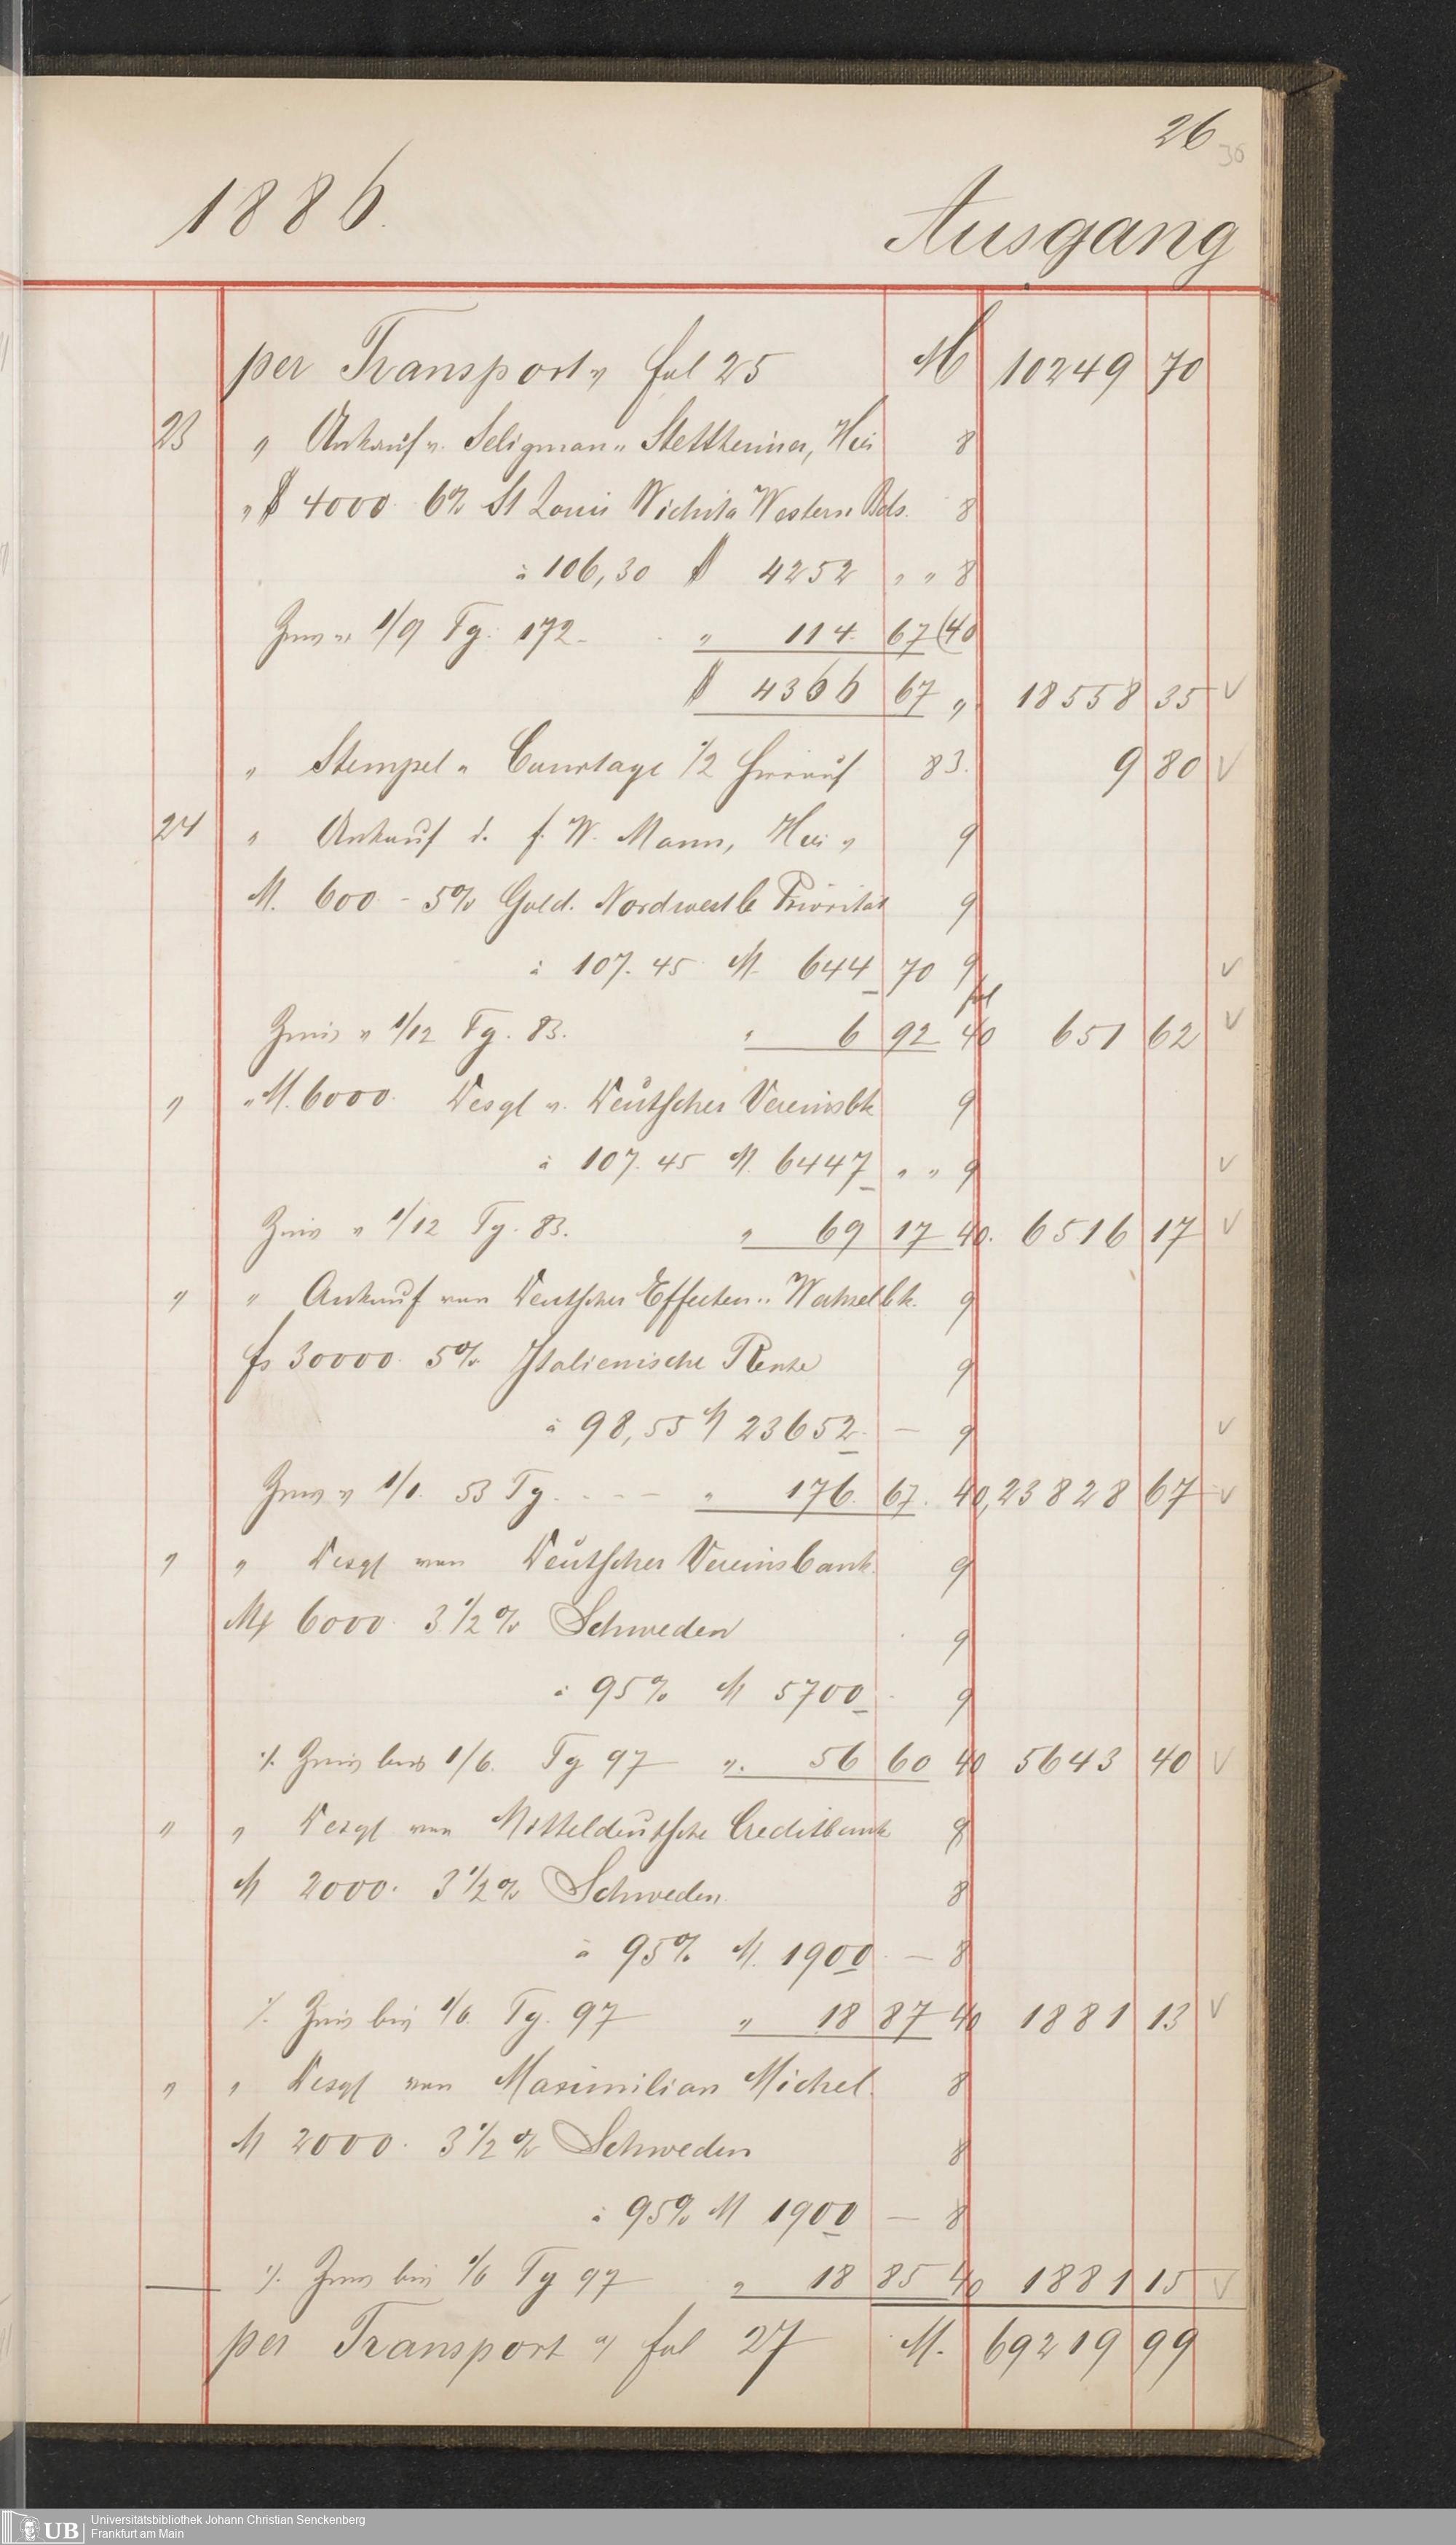 26
36
1886.
Ausgang
per Transport v fol 25 M 10249 70
23 " Ankauf v. Seligman u Stettheimer, Hier 8
" $ 4000. 6% St Louis Wichita Western Bds. 8
à 106,30 $ 4252 " " 8
Zins v. 1/9 Tg. 172 - " 114. 67 40
$ 4366 67 " 18558 35 √
" Stempel u Courtage 1/2 83. 9 80 √
24 " Ankauf d. f. W. Mann, Hier 9
M. 600 - 5% Gold. Nordwestb Priorität 9
à 107.45 M. 644 70 9 √
fol
Zins v 1/12 Tg. 83. " 6 92 40 651 62 √
" " M. 6000. Desgl v. Deutscher Vereinsbk 9
à 107.45 M. 6447 " " 9 √
Zins v 1/12 Tg. 83. " 69 17 40. 6516 17 √
" " Ankauf von Deutscher Effecten u. Wechselbk. 9
fs 30000. 5% Italienische Rente 9
à 98,55 M 23652. — 9 √
Zins v 1/1. 53 Tg. - - - " 176. 67. 40, 23828 67 √
" " Desgl von Deutscher Vereinsbank. 9
M 6000. 3 1/2 % Schweden 9
à 95% M 5700 9
./. Zins bis 1/6. Tg 97 — ". 56 60 40 5643 40 √
" " Desgl von Mitteldeutsche Creditbank 8
M 2000. 3 1/2 % Schweden. 8
à 95% M. 1900. — 8
./. Zins bis 1/6. Tg. 97 " 18 87 40 1881 13 √
" " Desgl von Maximilian Michel. 8
M 2000. 3 1/2 % Schweden 8
à 95% M 1900 — 8
./. Zins bis 1/6 Tg 97 " 18 85 40 1881 15 √
per Transport a/ fol 27 M. 69219 99
UB Universitätsbibliothek Johann Christian Senckenberg
Frankfurt am Main